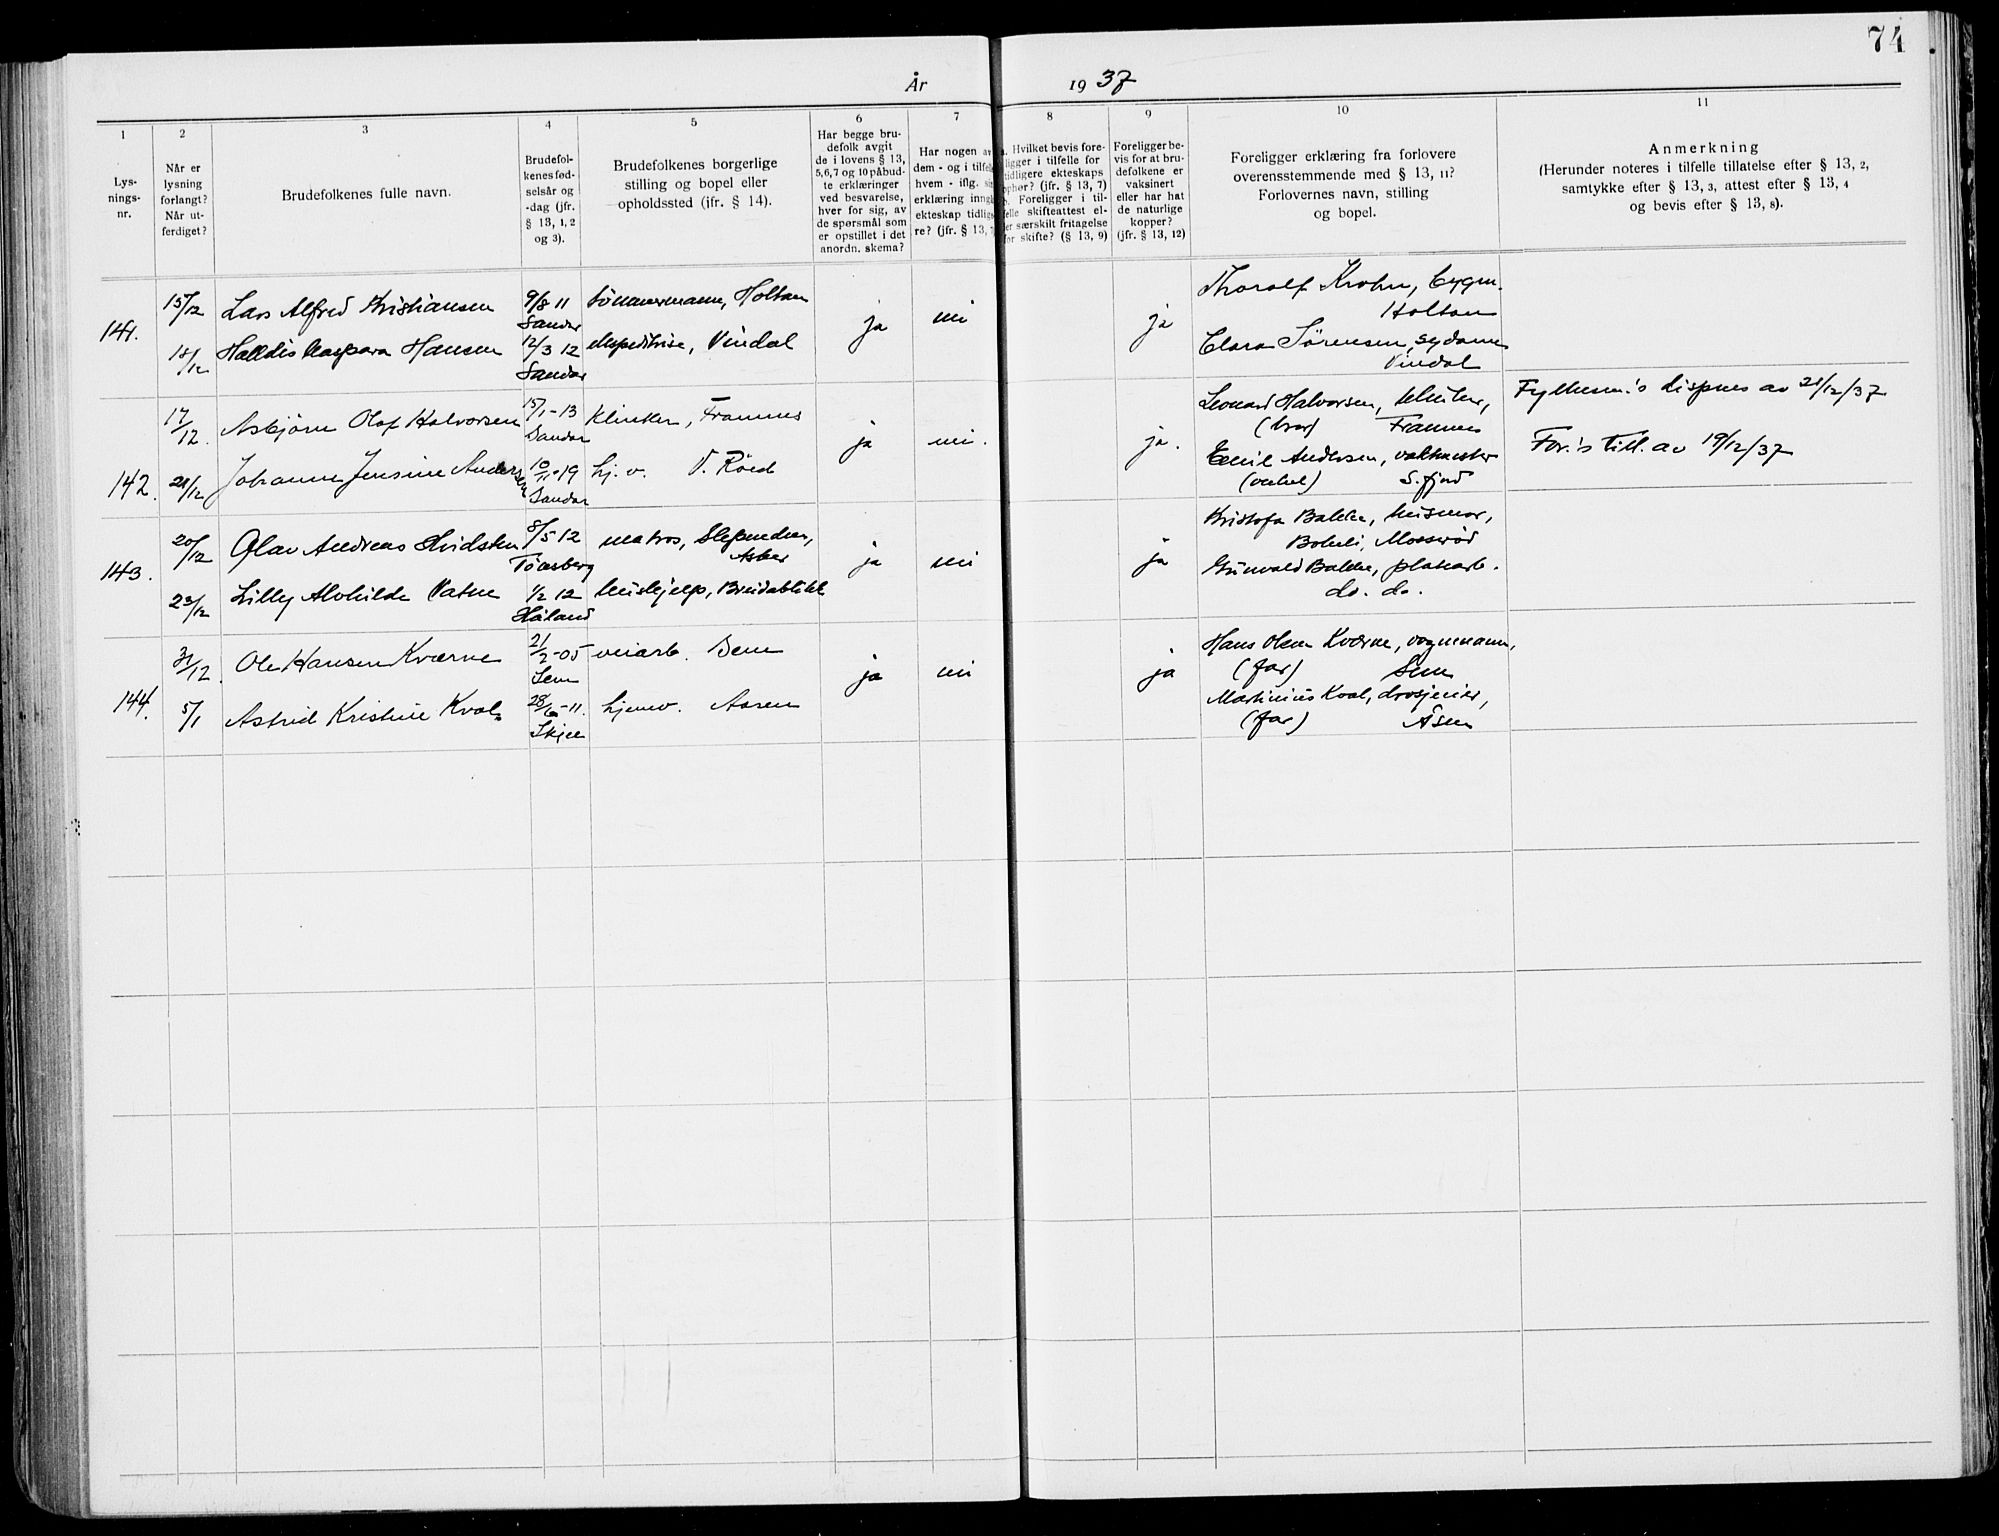 74
År 1937
1
2
3
4
5
6
7
8
9
10
11
Lys-
nings-
nr.
Når er
lysning
forlangt?
Når ut-
ferdiget?
Brudefolkenes fulle navn.
Brudefol-
kenes fød-
selsår og
-dag (jfr.
§ 13, 1, 2
og 3).
Brudefolkenes borgerlige
stilling og bopel eller
opholdssted (jfr. § 14).
Har begge bru-
defolk avgit
de i lovens § 13,
5,6,7 og 10 påbud-
te erklæringer
ved besvarelse,
hver for sig, av
de spørsmål som
er opstillet i det
anordn. skema?
Har nogen av
dem - og i tilfel
hvem - iflg. si
erklæring inng
ekteskap tidlig
re? (jfr. § 13, 7
a. Hvilket bevis fore-
ligger i tilfelle for
tidligere ekteskaps
ophør? (jfr. § 13, 7)
b. Foreligger i til-
felle skifteattest el-
ler særskilt fritagelse
for skifte? (§ 13, 9)
Foreligger be-
vis for at bru-
defolkene er
vaksinert
eller har hat
de naturlige
kopper?
(jfr. § 13, 12)
Foreligger erklæring fra forlovere
overensstemmende med § 13, 11?
Forlovernes navn, stilling
og bopel.
Anmerkning
(Herunder noteres i tilfelle tillatelse efter § 13, 2,
samtykke efter § 13, 3, attest efter § 13, 4
og bevis efter § 13, 8).
141.
15/12
18/12
Lars Alfred Kristiansen
Halldis Kaspara Hansen
9/8 11
Sandar
12/3 12
Sandar
tömmermann, Holtan
ekspeditrise, Vindal
ja
nei
ja
Thoralf Krohn, bygm.
Holtan
Clara Sörensen, sydame
Vindal
142.
17/12.
21/12
Asbjörn Olaf Halvorsen
Johanne Jensine Andersen
15/1-13
Sandar
10/11-19
Sandar
Klinker, Framnes
hj. v. V. Röed
ja
nei.
ja.
Leonard Halvorsen,
(bror) Framnes
Emil Andersen, vaktmester
(onkel) S.fjord
Fylkesm.'s dispens av 21/12/37
For.'s till. av 19/12/37
143.
20/12
23/12
Olav Andreas Hvidsten
Lilly Alvhilde Vatne
8/5 12
Tönsberg
1/2 12
Håland
matros, Slependen,
Asker
hushjelp, Breidablikk
ja
nei
ja
Kristofa Bakke, husmor,
Boheli, Mosserød
Gunvald Bakke, platearb.
do. do.
144.
31/12.
5/1
Ole Hansen Kværne
Astrid Kristine Kval
2/2-05
Sem
28/6-11.
Skjee
veiarb. Sem
hjemv. Aasen
ja
nei
ja
Hans Olsen Kværne, vognmann,
(far) Sem
Martinius Kval, drosjeeier,
(far) Åsen